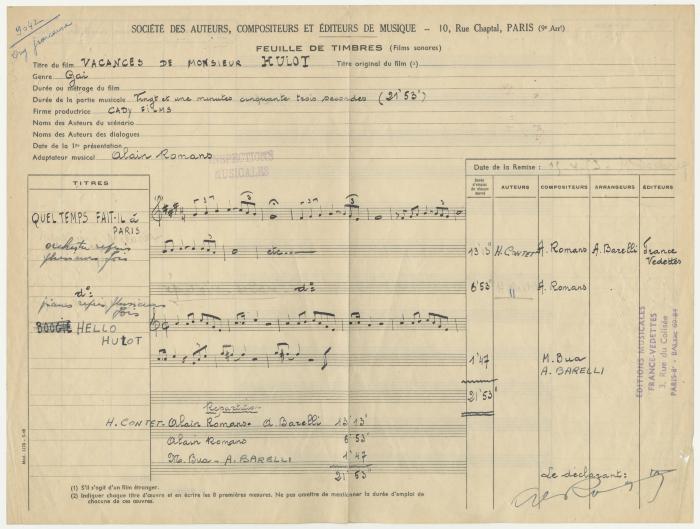 9042
SOCIÉTÉ DES AUTEURS, COMPOSITEURS ET ÉDITEURS DE MUSIQUE — 10, Rue Chaptal, PARIS (9e Arrt)
FEUILLE DE TIMBRES (Films sonores)
Titre du film VACANCES DE MONSIEUR HULOT Titre original du film (1)
Genre Gai
Durée ou métrage du film
Durée de la partie musicale Vingt et une minutes cinquante trois secondes (21'53")
Firme productrice CADY FILMS
Noms des Auteurs du scénario
Noms des Auteurs des dialogues
Date de la 1re présentation
Adaptateur musical Alain Romans
INSPECTIONS
MUSICALES
Date de la Remise :
TITRES
AUTEURS COMPOSITEURS ARRANGEURS ÉDITEURS
QUEL TEMPS FAIT-IL à
PARIS
orchestre repris
plusieurs fois
etc
13'13" H. CONTET A. Romans A. Barelli France
Vedettes
do: do: 6'53" " A. Romans
piano repris plusieurs
fois
BOOGIE HELLO
HULOT
1'47 M. Bua
A. BARELLI
21'53"
EDITIONS MUSICALES
FRANCE-VEDETTES
3, Rue du Colisée
PARIS-8e - BALZAC 60-84
Répartition
H. CONTET - Alain Romans - A. Barelli 13'13"
Alain Romans 6'53"
M. Bua - A. BARELLI 1'47
21'53
Le déclarant :
(1) S'il s'agit d'un film étranger.
(2) Indiquer chaque titre d'œuvre et en écrire les 8 premières mesures. Ne pas omettre de mentionner la durée d'emploi de
chacune de ces œuvres.